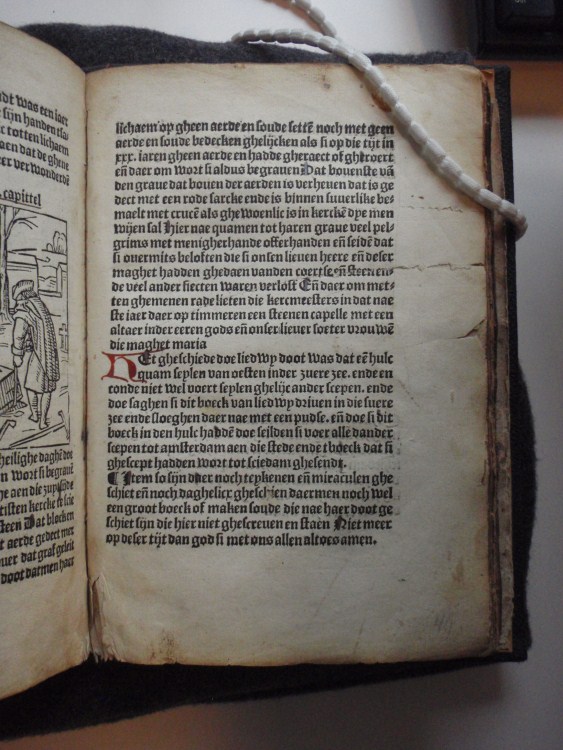 dt was een iaer
sijn handen tsa
totten lichaem
aen dat de ghene
er ver wonderde
capittel
heilighe daghē doe
n wort si begrauē
e aen die
tisten kercke
steen Dat blocken
aerde gedect met
uer dat graf geleit
doot datmen haer
lichaem op gheen aerde en soude settē noch met geen
aerde en soude bedecken ghelijcken als si op die tijt in
xxx. iaren gheen aerde en hadde gheraect of gheroert
eñ daer om wort si aldus begrauen Dat bouenste vā
den graue dat bouen der aerden is verheuen dat is ge
dect met een rode sarcke ende is binnen suuerlike be
maelt met crucē als ghewoenlic is in kerckē dye men
wijen sal Hier nae quamen tot haren graue veel pel-
grims met menigherhande offerhanden eñ seidē dat
si ouermits beloften die si onsen lieuen heere eñ deser
maghet hadden ghedaen vanden coertse, eñ steenen-
de veel ander siecten waren verlost Eñ daer om met-
ten ghemenen rade lieten die kercmeesters in dat nae
ste iaer daer op timmeren een steenen capelle met een
altaer inder eeren gods eñ onser lieuer soeter vrouwē
die maghet maria
Het gheschiede doe liedwy doot was dat eē hulc
quam seylen van oesten inder zuere zee. ende en
conde niet wel voert seylen ghelijc ander scepen. ende
doe saghen si dit boeck van liedwy driuen in die suere
zee ende sloeghen daer nae met een pudse. eñ doe si dit
boeck in den hulc haddē doe seilden si voer alle dander
scepen tot amsterdam aen die stede ende tboeck dat si
ghescept hadden wort tot sciedam ghesendt.
¶ Item so sijn daer noch teykenen eñ miraculen ghe
schiet eñ noch daghelicx gheschien daermen noch wel
een groot boeck of maken soude die nae haer doot ge
schiet sijn die hier niet ghescreuen en staen Niet meer
op deser tijt dan god si met ons allen altoes amen.